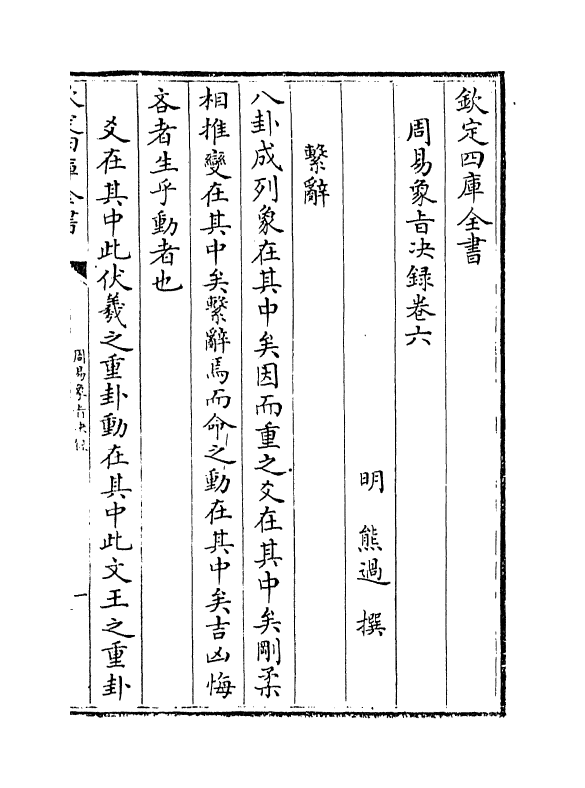 欽定四庫全書
周易象旨決録卷六
明 熊過 撰
繫辭
八卦成列象在其中矣因而重之爻在其中矣剛柔
相推變在其中矣繫辭焉而命之動在其中矣吉凶悔
吝者生乎動者也
爻在其中此伏羲之重卦動在其中此文王之重卦
欽定四庫全書
周易象旨決録
一